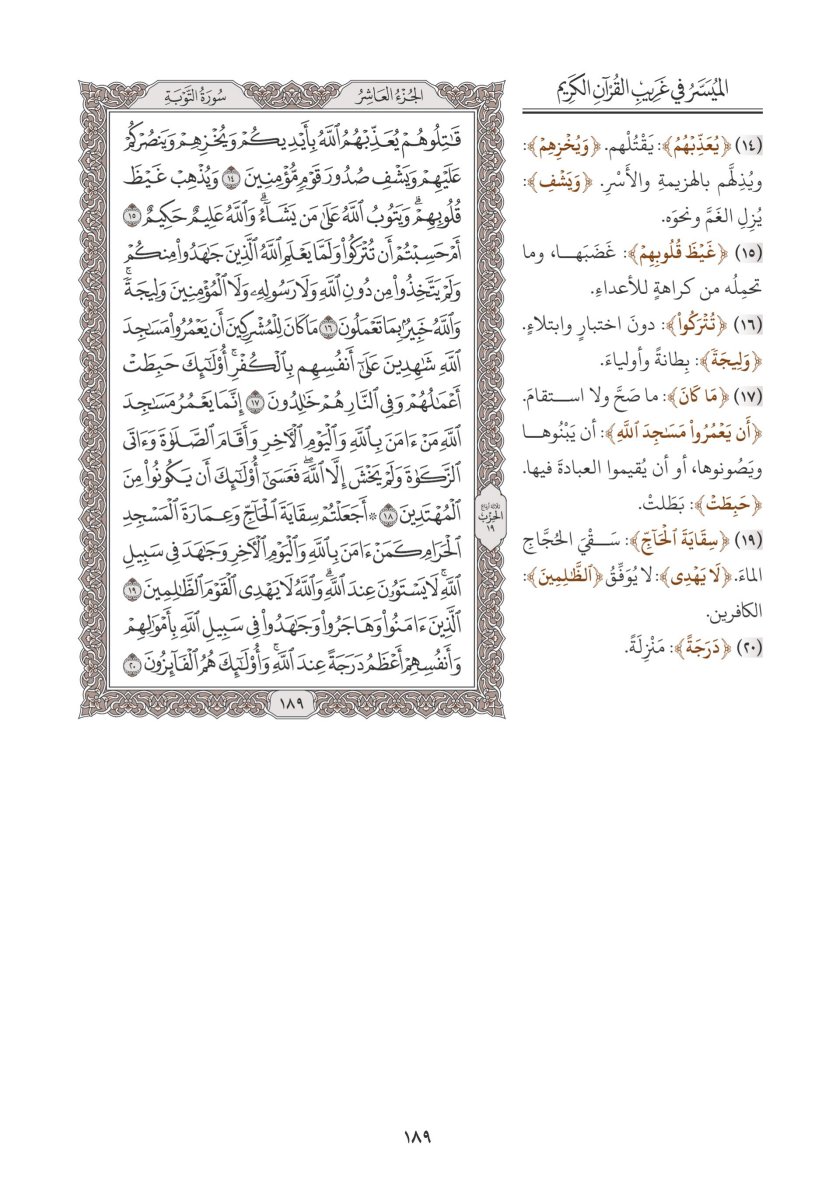 الميسر في غريب القرآن الكريم
(١٤) ﴿يُعَذِّبْهُمُ﴾: يَقْتُلْهم. ﴿وَيُخْزِهِمْ﴾:
ويُذِلَّهم بالهزيمةِ والأَسْرِ. ﴿وَيَشْفِ﴾:
يُزِلِ الغَمَّ ونحوَه.
(١٥) ﴿غَيْظَ قُلُوبِهِمْ﴾: غَضَبَهـا، وما
تحمِلُه من كراهةٍ للأعداءِ.
(١٦) ﴿تُتْرَكُواْ﴾: دونَ اختبارٍ وابتلاءٍ.
﴿وَلِيجَةً﴾: بِطانةً وأولياءَ.
(١٧) ﴿مَا كَانَ﴾: ما صَحَّ ولا استقامَ.
﴿أَن يَعْمُرُواْ مَسَٰجِدَ ٱللَّهِ﴾: أن يَبْنُوهـا
ويَصُونوها، أو أن يُقيموا العبادةَ فيها.
﴿حَبِطَتْ﴾: بَطَلتْ.
(١٩) ﴿سِقَايَةَ ٱلْحَآجِّ﴾: سَـقْيَ الحُجَّاجِ
الماءَ. ﴿لَا يَهْدِى﴾: لا يُوَفِّقُ ﴿ٱلظَّٰلِمِينَ﴾:
الكافرين.
(٢٠) ﴿دَرَجَةً﴾: مَنْزِلَةً.
الجُزْءُ العَاشِرُ
سُورَةُ التَّوْبَةِ
قَٰتِلُوهُمْ يُعَذِّبْهُمُ ٱللَّهُ بِأَيْدِيكُمْ وَيُخْزِهِمْ وَيَنصُرْكُمْ
عَلَيْهِمْ وَيَشْفِ صُدُورَ قَوْمٍ مُّؤْمِنِينَ ١٤ وَيُذْهِبْ غَيْظَ
قُلُوبِهِمْۗ وَيَتُوبُ ٱللَّهُ عَلَىٰ مَن يَشَآءُۗ وَٱللَّهُ عَلِيمٌ حَكِيمٌ ١٥
أَمْ حَسِبْتُمْ أَن تُتْرَكُواْ وَلَمَّا يَعْلَمِ ٱللَّهُ ٱلَّذِينَ جَٰهَدُواْ مِنكُمْ
وَلَمْ يَتَّخِذُواْ مِن دُونِ ٱللَّهِ وَلَا رَسُولِهِۦ وَلَا ٱلْمُؤْمِنِينَ وَلِيجَةًۚ
وَٱللَّهُ خَبِيرٌۢ بِمَا تَعْمَلُونَ ١٦ مَا كَانَ لِلْمُشْرِكِينَ أَن يَعْمُرُواْ مَسَٰجِدَ
ٱللَّهِ شَٰهِدِينَ عَلَىٰٓ أَنفُسِهِم بِٱلْكُفْرِۚ أُوْلَٰٓئِكَ حَبِطَتْ
أَعْمَٰلُهُمْ وَفِى ٱلنَّارِ هُمْ خَٰلِدُونَ ١٧ إِنَّمَا يَعْمُرُ مَسَٰجِدَ
ٱللَّهِ مَنْ ءَامَنَ بِٱللَّهِ وَٱلْيَوْمِ ٱلْأٓخِرِ وَأَقَامَ ٱلصَّلَوٰةَ وَءَاتَى
ٱلزَّكَوٰةَ وَلَمْ يَخْشَ إِلَّا ٱللَّهَۖ فَعَسَىٰٓ أُوْلَٰٓئِكَ أَن يَكُونُواْ مِنَ
ٱلْمُهْتَدِينَ ١٨ ۞ أَجَعَلْتُمْ سِقَايَةَ ٱلْحَآجِّ وَعِمَارَةَ ٱلْمَسْجِدِ
ٱلْحَرَامِ كَمَنْ ءَامَنَ بِٱللَّهِ وَٱلْيَوْمِ ٱلْأٓخِرِ وَجَٰهَدَ فِى سَبِيلِ
ٱللَّهِۚ لَا يَسْتَوُۥنَ عِندَ ٱللَّهِۗ وَٱللَّهُ لَا يَهْدِى ٱلْقَوْمَ ٱلظَّٰلِمِينَ ١٩
ٱلَّذِينَ ءَامَنُواْ وَهَاجَرُواْ وَجَٰهَدُواْ فِى سَبِيلِ ٱللَّهِ بِأَمْوَٰلِهِمْ
وَأَنفُسِهِمْ أَعْظَمُ دَرَجَةً عِندَ ٱللَّهِۚ وَأُوْلَٰٓئِكَ هُمُ ٱلْفَآئِزُونَ ٢٠
ثلاثة أرباع
الحزب
١٩
١٨٩
١٨٩